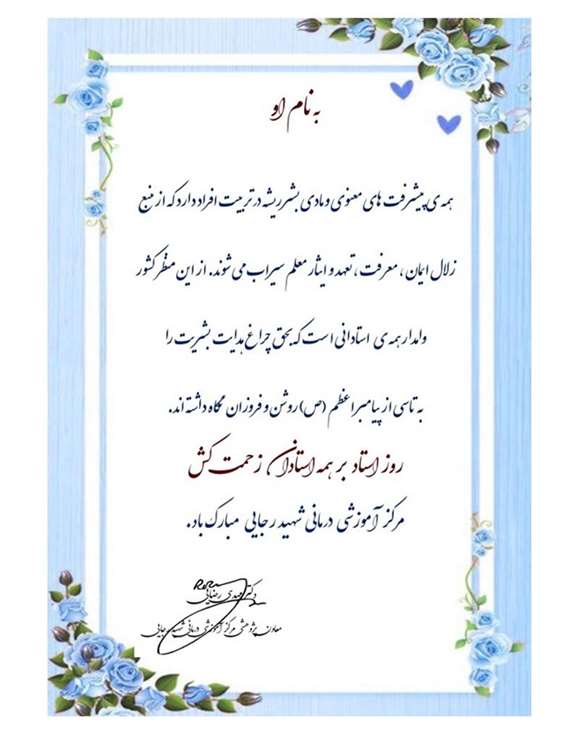 به نام او
همه ی پیشرفت های معنوی و مادی بشر ریشه در تربیت افراد دارد که از منبع
زلال ایمان ، معرفت ، تعهد و ایثار معلم سیراب می شوند. از این منظر کشور
وامدار همه ی استادانی است که بحق چراغ هدایت بشریت را
به تاسی از پیامبر اعظم (ص) روشن و فروزان نگاه داشته اند.
روز استاد بر همه استادان زحمت کش
مرکز آموزشی درمانی شهید رجایی مبارک باد.
دکتر مهدی رضایی
معاون پژوهشی مرکز آموزشی درمانی شهید رجایی